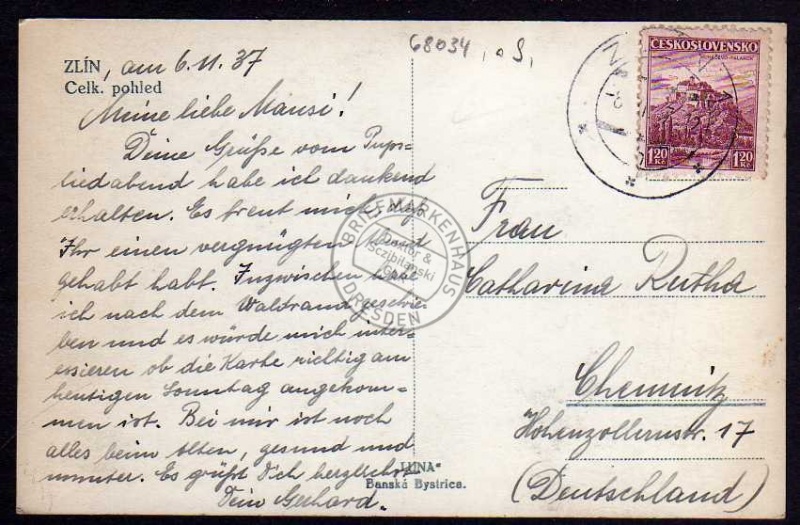 68034
ZLÍN, am 6.11.37
Celk. pohled
Meine liebe Mausi!
Deine Grüße vom Pups-
liedabend habe ich dankend
erhalten. Es freut mich, daß
Ihr einen vergnügten Abend
gehabt habt. Inzwischen habe
ich nach dem Waldrand geschrie-
ben und es würde mich inter-
essieren ob die Karte richtig am
heutigen Sonntag angekom-
men ist. Bei mir ist noch
alles beim Alten, gesund und
munter. Es grüßt Dich herzlichst
Dein Gerhard.
ČESKOSLOVENSKO
1.20 Kč 1.20 Kč
Frau
Catharina Rutha
Chemnitz
Hohenzollernstr. 17
(Deutschland)
"LUNA"
Banská Bystrica.
BRIEFMARKENHAUS
Sczibilanski
DRESDEN